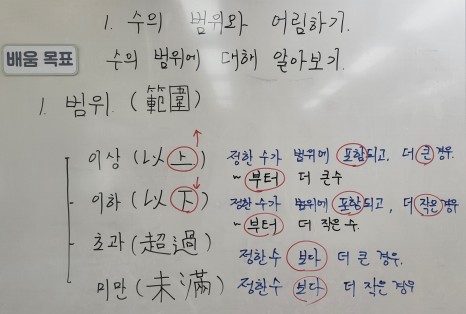 1. 수의 범위와 어림하기.
배움 목표
수의 범위에 대해 알아보기.
1. 범위. (範圍)
이상 (以上) 정한 수가 범위에 포함되고, 더 큰 경우.
~ 부터 더 큰수
이하 (以下) 정한 수가 범위에 포함되고, 더 작은 경우
~ 부터 더 작은 수.
초과 (超過) 정한수 보다 더 큰 경우.
미만 (未滿) 정한수 보다 더 작은 경우